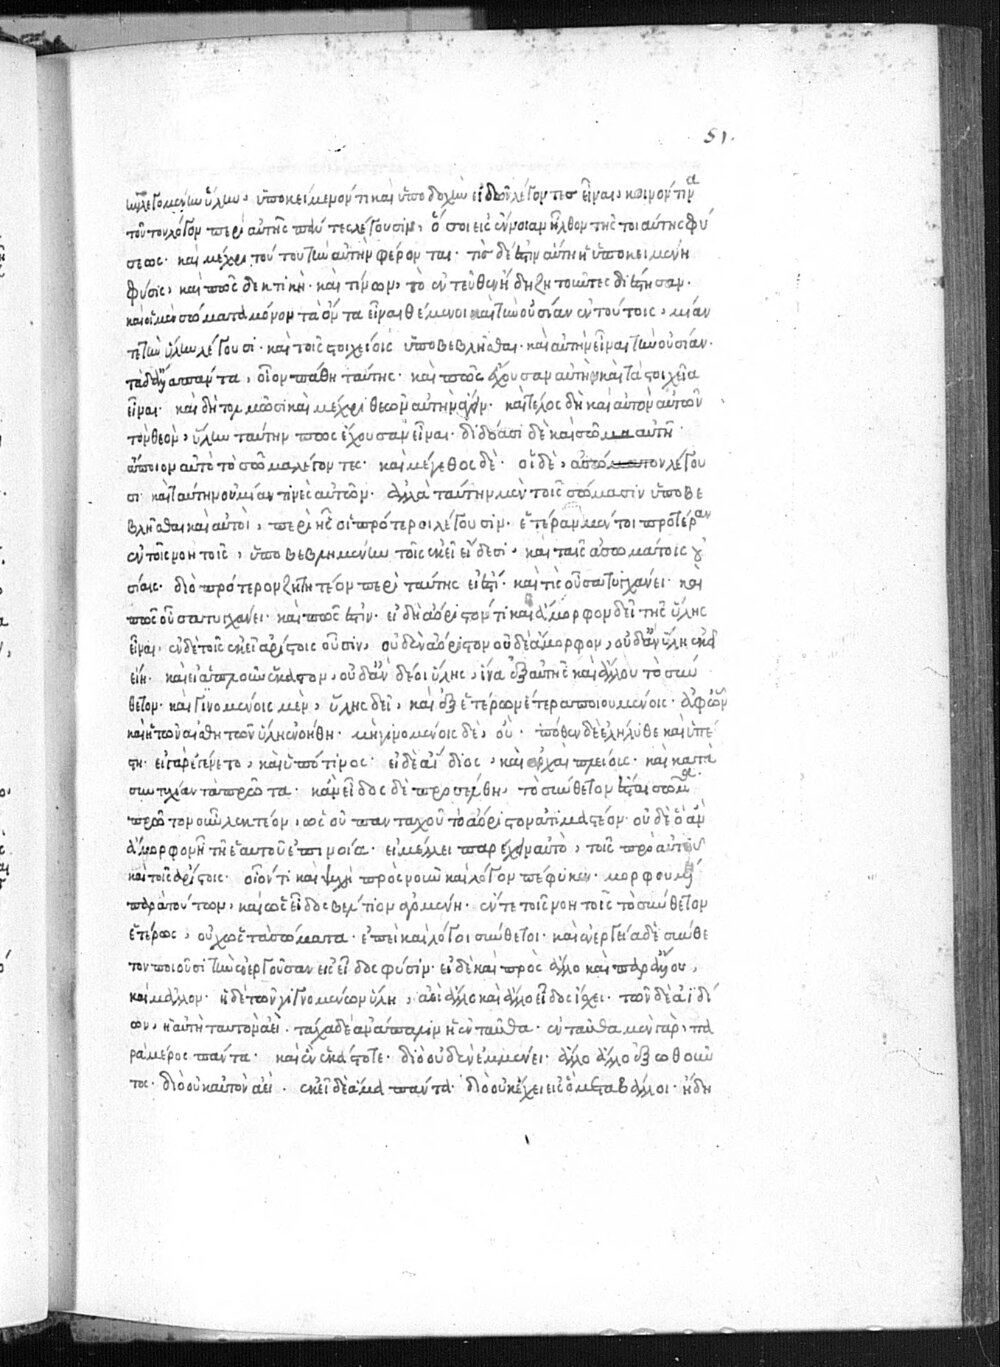 51.
τὴν λεγομένην ὕλην, ὑποκείμενόν τι καὶ ὑποδοχὴν εἰδῶν λέγοντες εἶναι, κοινόν τινα
τοῦτον λόγον περὶ αὐτῆς πάντες λέγουσιν, ὅσοι εἰς ἔννοιαν ἦλθον τῆς τοιαύτης φύ
σεως· καὶ μέχρι τούτου τὴν αὐτὴν φέρονται· τίς δέ ἐστιν αὕτη ἡ ὑποκειμένη
φύσις, καὶ πῶς δεκτικὴ καὶ τίνων, τὸ ἐντεῦθεν ἤδη ζητοῦντες διέστησαν·
καὶ οἱ μὲν σώματα μόνον τὰ ὄντα εἶναι θέμενοι καὶ τὴν οὐσίαν ἐν τούτοις, μίαν
τε τὴν ὕλην λέγουσι· καὶ τοῖς στοιχείοις ὑποβεβλῆσθαι· καὶ αὐτὴν εἶναι τὴν οὐσίαν·
τὰ δ' ἄλλα πάντα, οἷον πάθη ταύτης· καὶ πῶς ἔχουσαν αὐτὴν καὶ τὰ στοιχεῖα
εἶναι· καὶ δὴ τολμῶσι καὶ μέχρι θεῶν αὐτὴν ἄγειν· καὶ τέλος δὴ καὶ αὐτὸν αὐτῶν
τὸν θεὸν, ὕλην ταύτην πως ἔχουσαν εἶναι· διδόασι δὲ καὶ σῶμα αὐτῇ·
ἄποιον αὐτὸ τὸ σῶμα λέγοντες· καὶ μέγεθος δὲ· οἱ δὲ, ἀσώματον λέγου
σι· καὶ ταύτην οὐ μίαν τινὲς αὐτῶν· ἀλλὰ ταύτην μὲν τοῖς σώμασιν ὑποβε
βλῆσθαι καὶ αὐτοὶ, περὶ ἧς οἱ πρότεροι λέγουσιν· ἑτέραν μέντοι προτέραν
ἐν τοῖς νοητοῖς, ὑποβεβλημένην τοῖς ἐκεῖ εἴδεσι· καὶ ταῖς ἀσωμάτοις οὐ
σίαις· διὸ πρότερον ζητητέον περὶ ταύτης εἰ ἔστι· καὶ τίς οὖσα τυγχάνει· καὶ
πῶς οὖσα τυγχάνει· καὶ πῶς ἐστιν· εἰ δὴ ἀόριστόν τι καὶ ἄμορφον δεῖ τῆς ὕλης
εἶναι, ἐν δὲ τοῖς ἐκεῖ ἀρίστοις οὖσιν, οὐδὲν ἀόριστον οὐδὲ ἄμορφον, οὐδ' ἂν ὕλη ἐκεῖ
εἴη· καὶ εἰ ἁπλοῦν ἕκαστον, οὐδ' ἂν δέοι ὕλης, ἵνα ἐξ αὐτῆς καὶ ἄλλου τὸ σύν
θετον· καὶ γινομένοις μὲν, ὕλης δεῖ, καὶ ἐξ ἑτέρων ἕτερα ποιουμένοις· ἀφ' ὧν
καὶ ἡ τῶν αἰσθητῶν ὕλη ἐνοήθη· μὴ γινομένοις δὲ, οὔ· πόθεν δὲ ἐλήλυθε καὶ ὑπέ
στη· εἰ γὰρ ἐγένετο, καὶ ὑπό τινος· εἰ δὲ ἀΐδιος, καὶ ἀρχαὶ πλείους· καὶ κατὰ
συντυχίαν τὰ πρῶτα· κἂν εἶδος δὲ προσέλθῃ, τὸ σύνθετον ἔσται σῶμα·
πρῶτον οὖν λεκτέον, ὡς οὐ πανταχοῦ τὸ ἀόριστον ἀτιμαστέον· οὐδὲ ὃ ἂν
ἄμορφον ᾖ τῇ ἑαυτοῦ ἐπινοίᾳ· εἰ μέλλει παρέχειν αὐτὸ, τοῖς πρὸ αὐτοῦ
καὶ τοῖς ἀρίστοις· οἷόν τι καὶ ψυχὴ πρὸς νοῦν καὶ λόγον πέφυκεν· μορφουμένη
παρὰ τούτων, καὶ ὡς εἶδος βέλτιον ἀγομένη· ἔν τε τοῖς νοητοῖς τὸ σύνθετον
ἑτέρως, οὐχ ὡς τὰ σώματα· ἐπεὶ καὶ λόγοι σύνθετοι· καὶ ἐνεργείᾳ δὲ σύνθε
τον ποιοῦσι τὴν ἐνεργοῦσαν εἰς εἶδος φύσιν· εἰ δὲ καὶ πρὸς ἄλλο καὶ παρ' ἄλλου,
καὶ μᾶλλον· ἡ δὲ τῶν γιγνομένων ὕλη, ἀεὶ ἄλλο καὶ ἄλλο εἶδος ἴσχει· τῶν δὲ ἀϊδί
ων, ἡ αὐτὴ ταυτὸν ἀεί· τάχα δὲ ἀνάπαλιν ἡ ἐνταῦθα· ἐνταῦθα μὲν γὰρ, πα
ρὰ μέρος πάντα· καὶ ἓν ἑκάστοτε· διὸ οὐδὲν ἐμμένει· ἄλλο ἄλλο ἐξωθοῦν
τος· διὸ οὐ ταυτὸν ἀεί· ἐκεῖ δὲ ἅμα πάντα· διὸ οὐκ ἔχει εἰς ὃ μεταβάλλοι· ἤδη